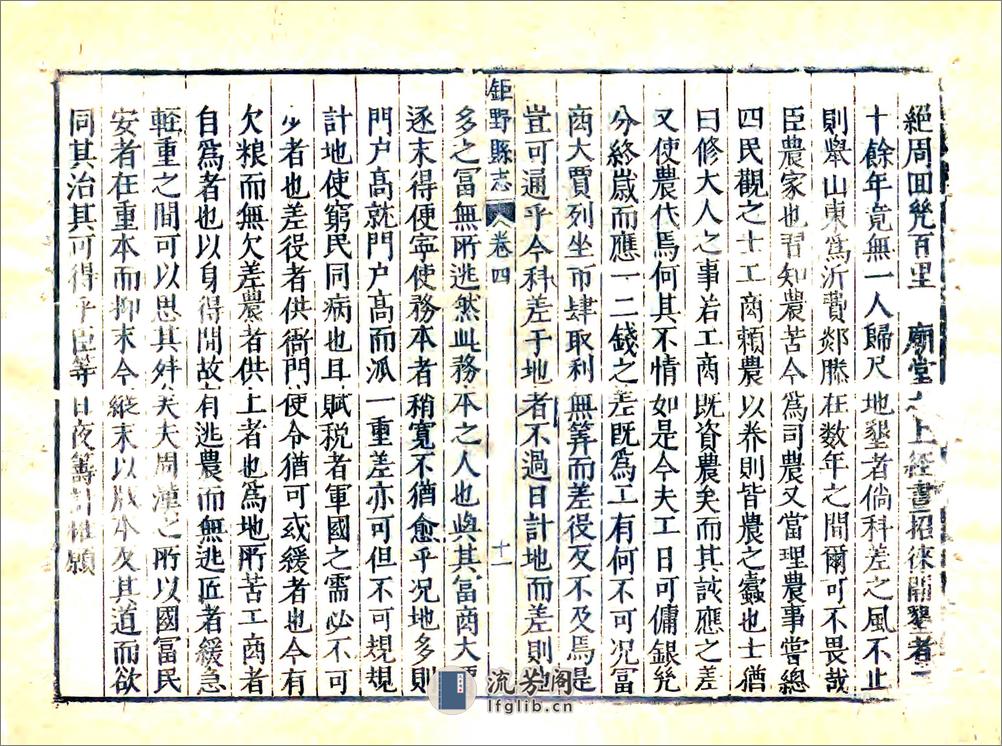 絕周回幾百里　廟堂之上經畫招徠開墾者二
十餘年竟無一人歸尺地墾者倘科差之風不止
則舉山東爲沂費郯滕在数年之間爾可不畏哉
臣農家也習知農苦今爲司農又當理農事嘗總
四民觀之士工商頼農以养則皆農之蠹也士猶
曰修大人之事若工商既資農矣而其該應之差
又使農代焉何其不情如是今夫工日可傭銀幾
分終歲而應一二錢之差既爲工有何不可况富
商大賈列坐市肆取利無筭而差役反不及焉是
豈可通乎今科差于地者不過日計地而差則地
鉅野縣志　卷四　十一
多之富無所逃然此務本之人也與其富商大賈
逐末得便寕使務本者稍寛不猶愈乎况地多則
門户高就門户高而派一重差亦可但不可規規
計地使窮民同病也且賦税者軍國之需必不可
少者也差役者供衙門便令猶可或緩者也今有
欠粮而無欠差農者供上者也爲地所苦工商者
自爲者也以身得閒故有逃農而無逃匠者緩急
輕重之間可以思其辨矣夫周漢之所以國富民
安者在重本而抑末今縱末以戕本欠其道而欲
同其治其可得乎臣等日夜籌計惟願
流芳阁
lfglib.cn